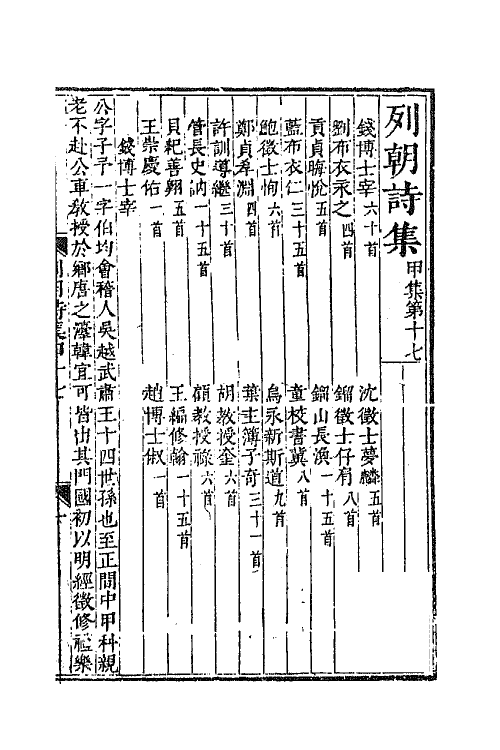 列朝詩集 甲集第十七
錢博士宰 六十首 沈徵士夢麟 五首
劉布衣永之 四首 鎦徵士仔肩 八首
貢貞晦悅 五首 鎦山長渙 一十五首
藍布衣仁 三十五首 童校書冀 八首
鮑徵士恂 六首 烏永新斯道 九首
鄭貞孝淵 四首 葉主簿子奇 三十一首
許訓導繼 三十首 胡教授奎 六首
管長史訥 一十五首 顧教授祿 六首
貝紀善翱 五首 王編修翰 一十五首
王崇慶佑 一首 趙博士俶 一首
錢博士宰
公字子予一字伯均會稽人吳越武肅王十四世孫也至正間中甲科親
老不赴公車教授於鄉唐之淳韓宜可皆出其門國初以明經徵修禮樂
列朝詩集甲十七 一